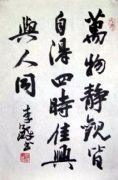 萬物靜觀皆
自得四時佳興
與人同